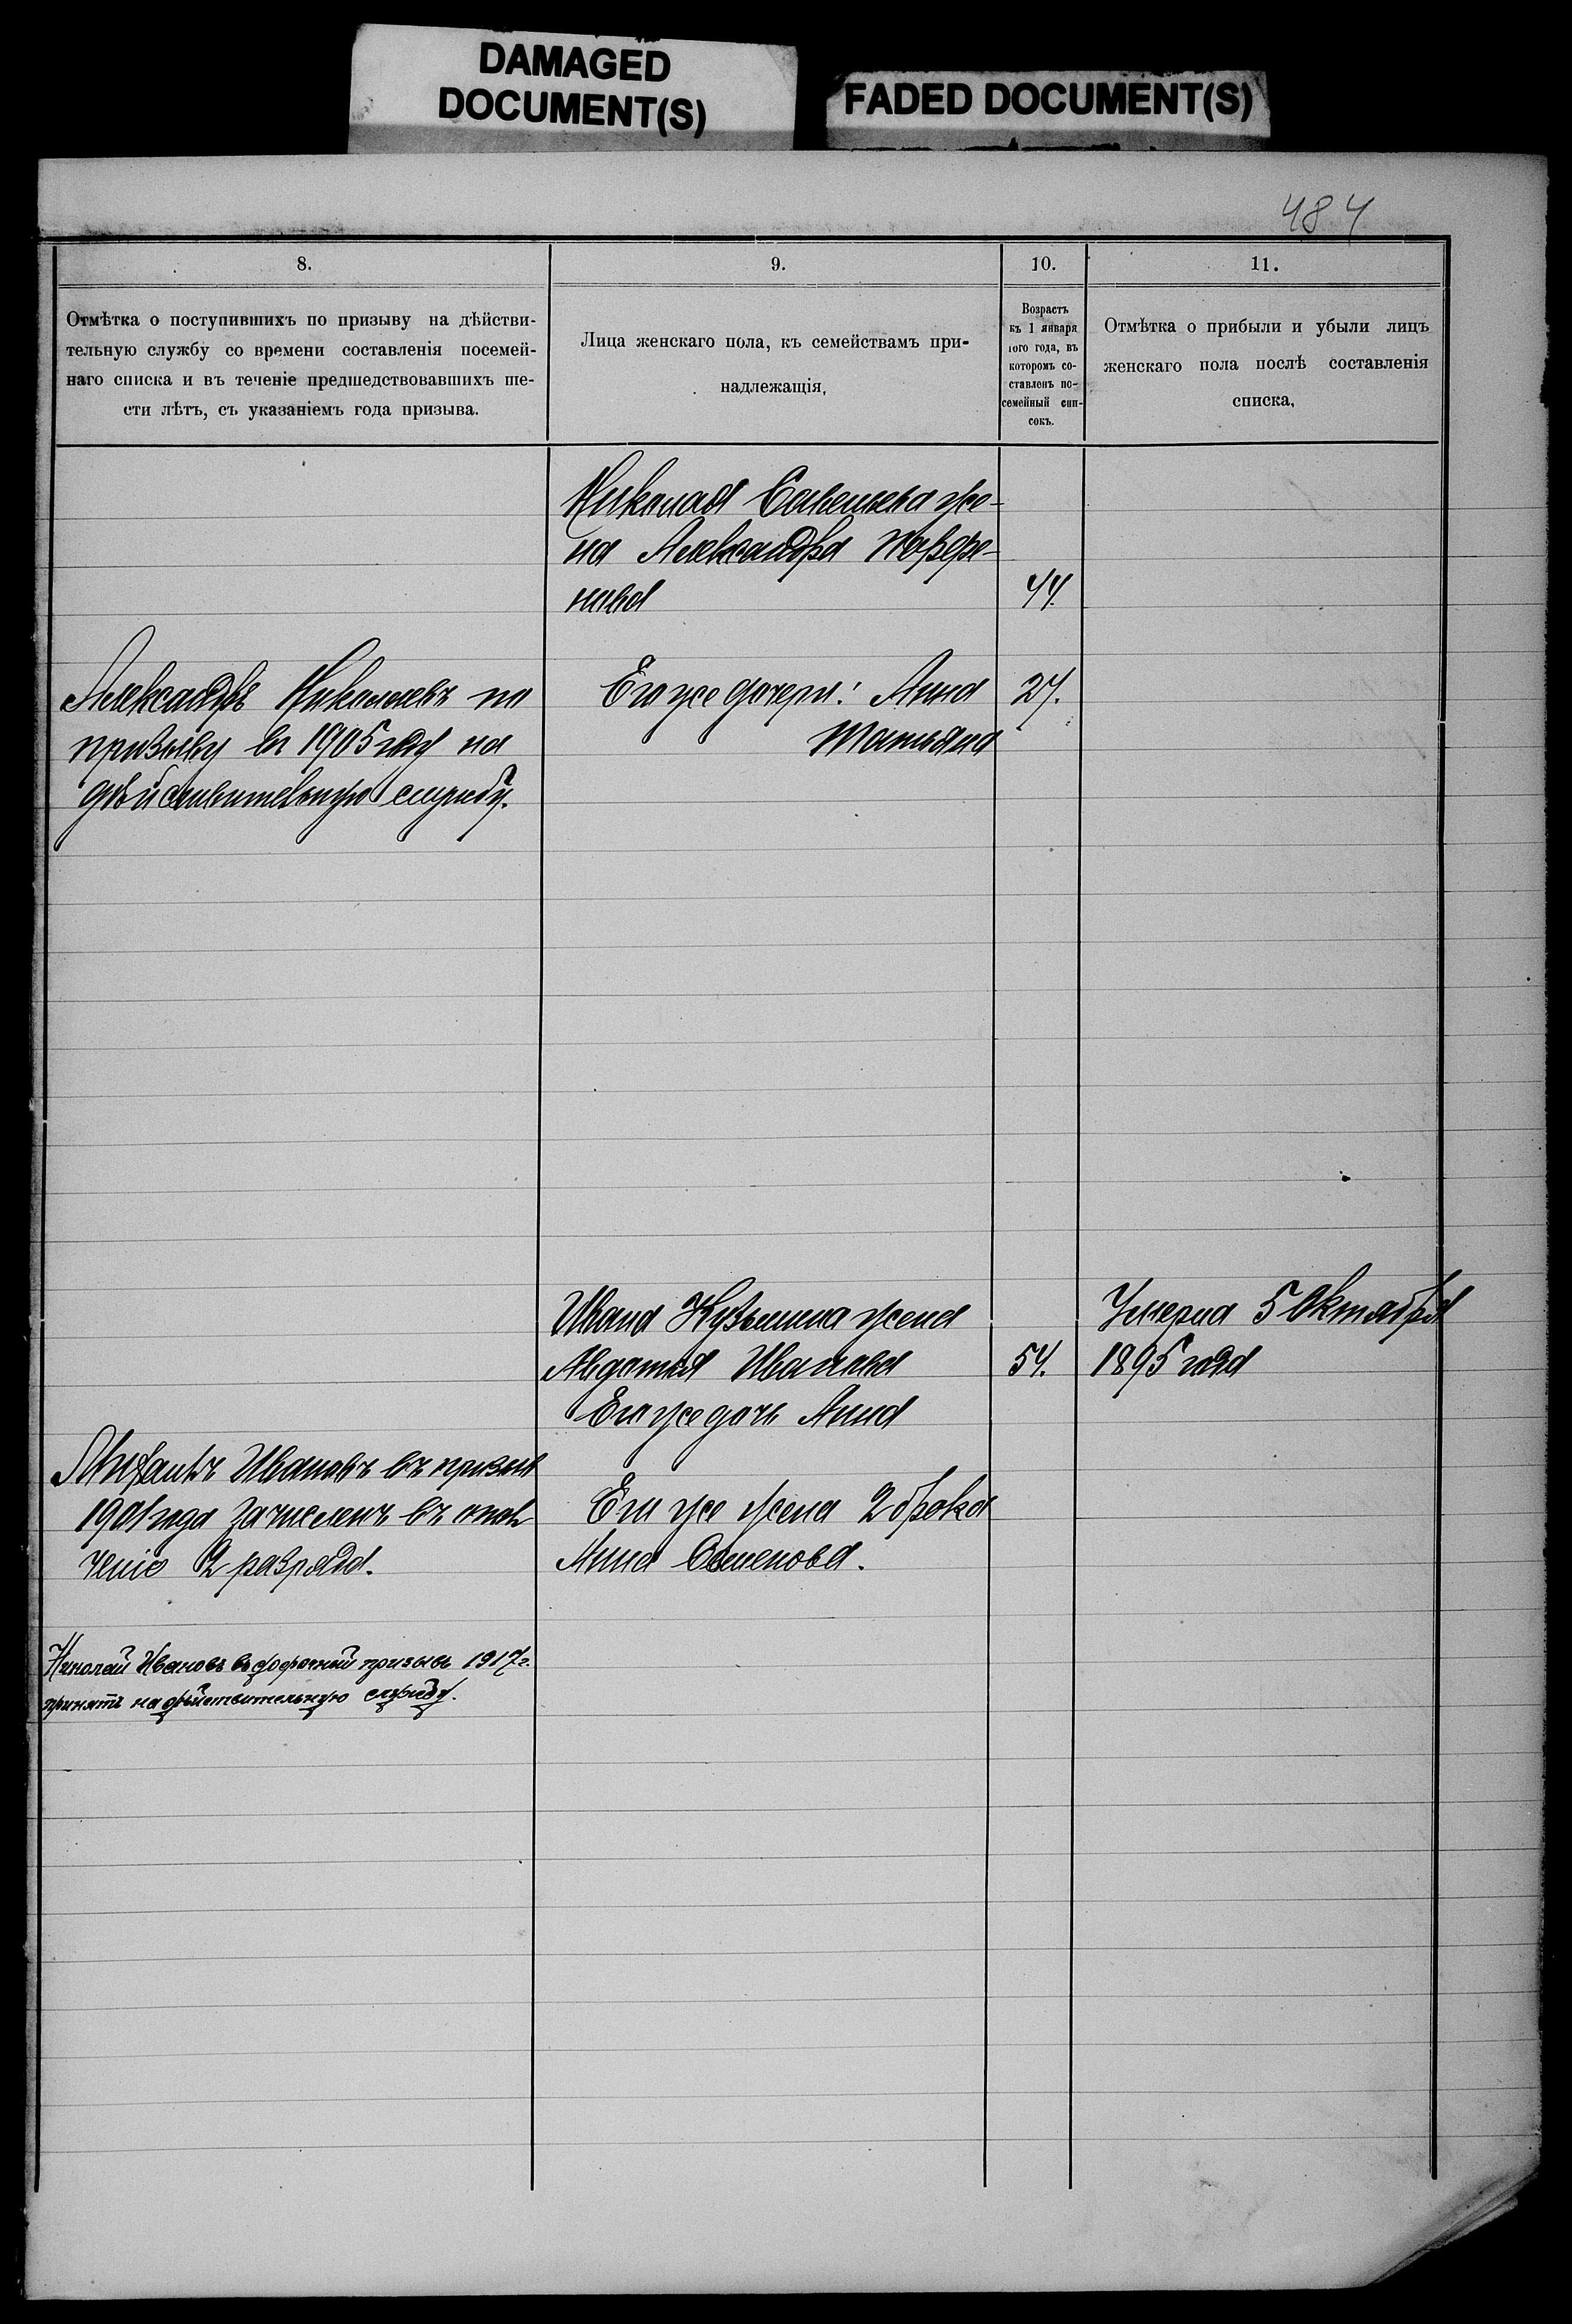 DAMAGED
DOCUMENT(S)
FADED DOCUMENT(S)
484
8.
Отмѣтка о поступившихъ по призыву на дѣйстви-
тельную службу со времени составленія посемей-
наго списка и въ теченіе предшедствовавшихъ ше-
сти лѣтъ, съ указаніемъ года призыва.
9.
Лица женскаго пола, къ семействамъ при-
надлежащія,
10.
Возрастъ
къ 1 января
того года, въ
которомъ со-
ставленъ по-
семейный спи-
сокъ.
11.
Отмѣтка о прибыли и убыли лицъ
женскаго пола послѣ составленія
списка,
Николая Савельева же-
на Александра
44.
Александръ Николаевъ по
призыву въ 1905 году на
дѣйствительную службу.
Его же дочери: Анна 27.
Татьяна
Ивана Кузьмина жена
Авдотья Иванова 54.
Его же дочь Анна
Умерла 5 Октября
1895 года
Ивановъ въ призыв
1901 года зачисленъ въ опол
ченіе 2 разряда.
Его же жена 2 брака
Анна Семенова.
Николай Ивановъ въ досрочный призывъ 1917 г.
принятъ на дѣйствительную службу.